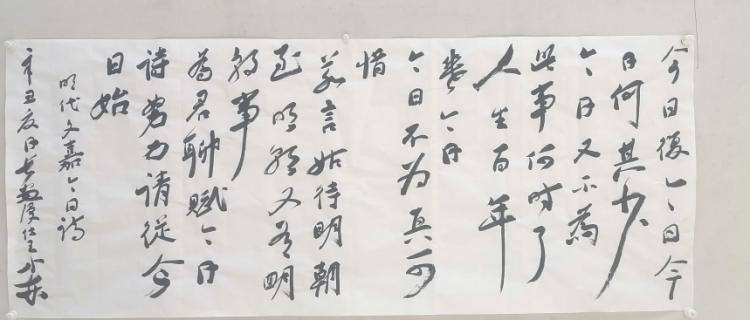 今日復今日今
日何其少
今日又不為
此事何時了
人生百年
幾今日
今日不為真可
惜
若言姑待明朝
至明朝又有明
朝事
為君聊賦今日
詩努力請從今
日始
明代文嘉今日詩
辛丑夏日